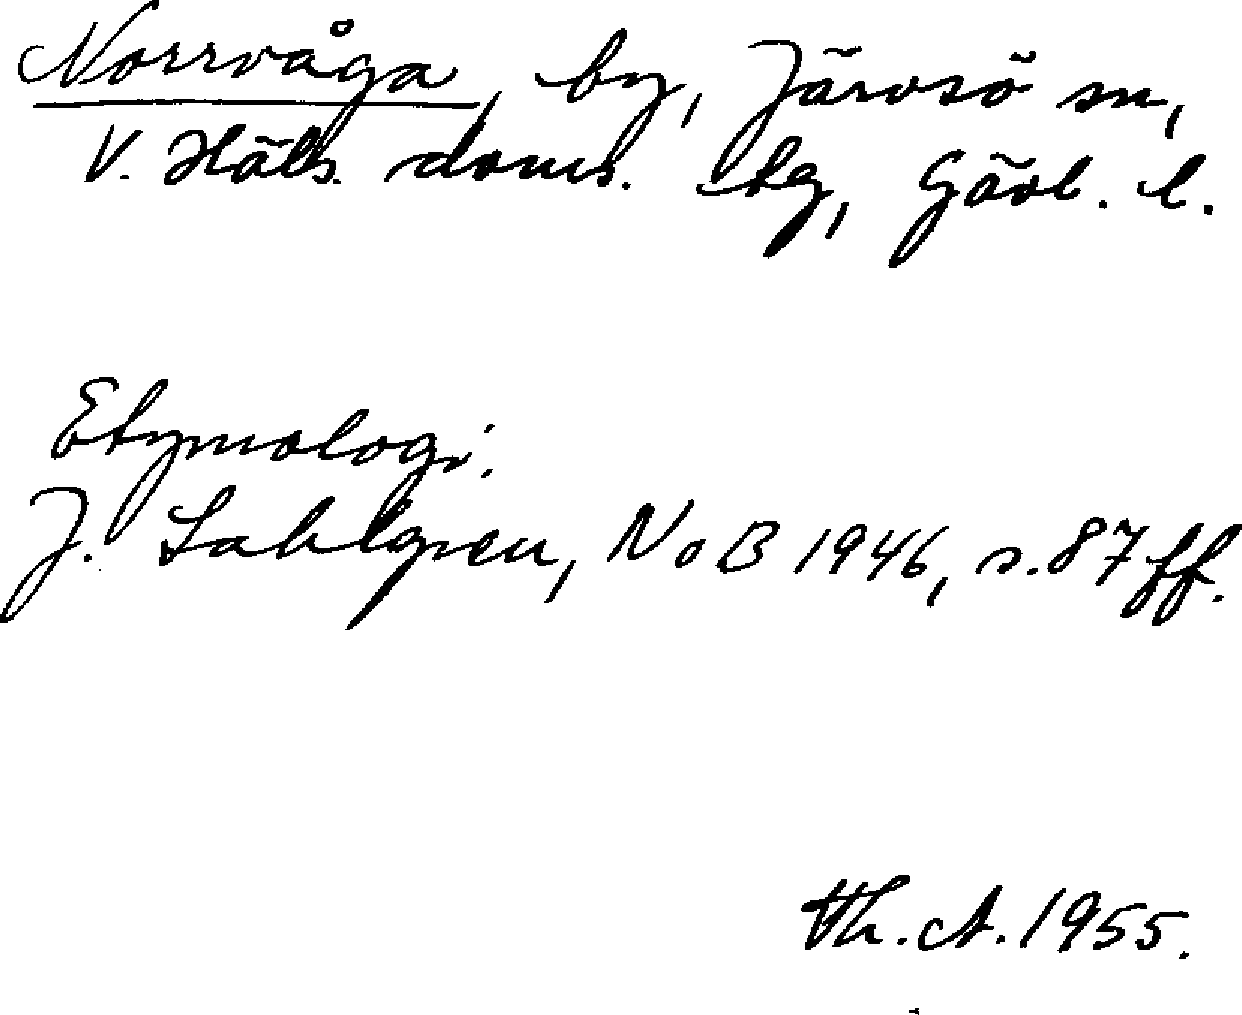 Norrvåga, by, Järvsö sn,
V. Häls. doms. hg, Gävl. l.
Etymologi:
J. Sahlgren, NoB 1946, s. 87 ff.
Th. A. 1955.